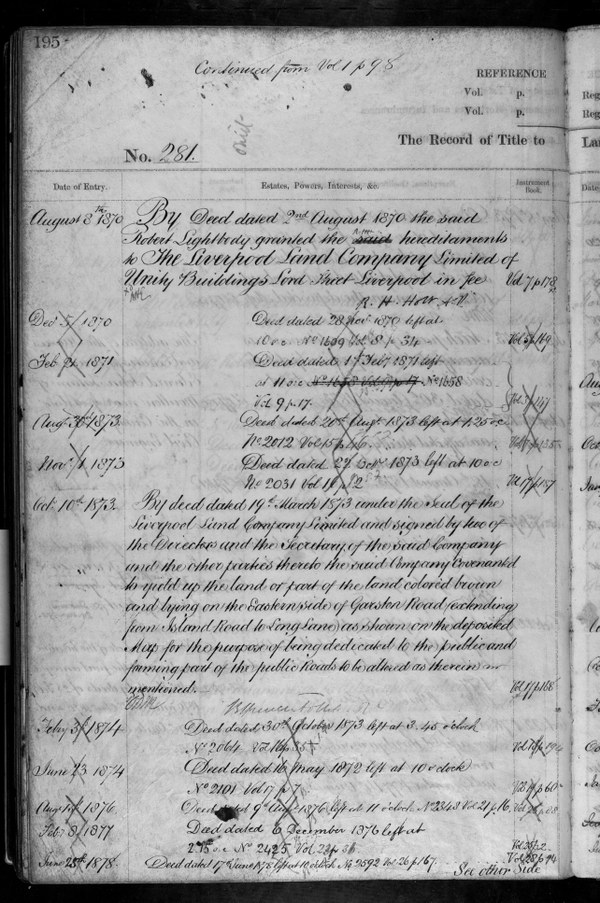 195
Continued from Vol 1 p 98
REFERENCE
Vol. p.
Vol. p.
The Record of Title to
No. 281.
Date of Entry.
Estates, Powers, Interests, &c.
Instrument Book.
August 8th 1870
By Deed dated 2nd August 1870 the said
Robert Lightbody granted the said hereditaments
to The Liverpool Land Company Limited of
Unity Buildings Lord Street Liverpool in fee
Vol 7 p 178
Decr 5 / 1870
Deed dated 28 Novr 1870 left at
10 o c No 1609 Vol 8 p 34
Feb 21 1871
Deed dated 17 Feby 1871 left
at 11 o c No 1658 Vol 9 p 17 No 1658
Vol 9 p. 17.
Augt 30 / 1873
Deed dated 20th Augt 1873 left at 1.25 o c
No 2012 Vol 15 p 16
Novr 1 1873
Deed dated 29 Octr 1873 left at 10 o c
No 2031 Vol 16 p 2
Vol 17 p 157
Octr 10th 1873
By deed dated 19th March 1873 under the Seal of the
Liverpool Land Company Limited and signed by two of
the Directors and the Secretary of the said Company
and the other parties thereto the said Company Covenanted
to yield up the land or part of the land colored brown
and lying on the Eastern side of Garston Road (extending
from Island Road to Long Lane) as shown on the deposited
Map for the purpose of being dedicated to the public and
forming part of the public Roads to be altered as therein
mentioned.
Feby 3 / 1874
Deed dated 30th October 1873 left at 3.45 o'clock
No 2064
June 23 1874
Deed dated 16 May 1872 left at 10 o'clock
No 2101 Vol 17 p 7
Augt 10 / 1876
Deed dated 9th Augt 1876 left at 11 o'clock No 2348 Vol 21 p 16
Feb 8 / 1877
Deed dated 6 December 1876 left at
o c No 2425 Vol 22 p
June 25th 1878
Deed dated 17th June 1878 left at 10 o'clock No 2592 Vol 26 p 167.
Vol 28 p 94
See other Side